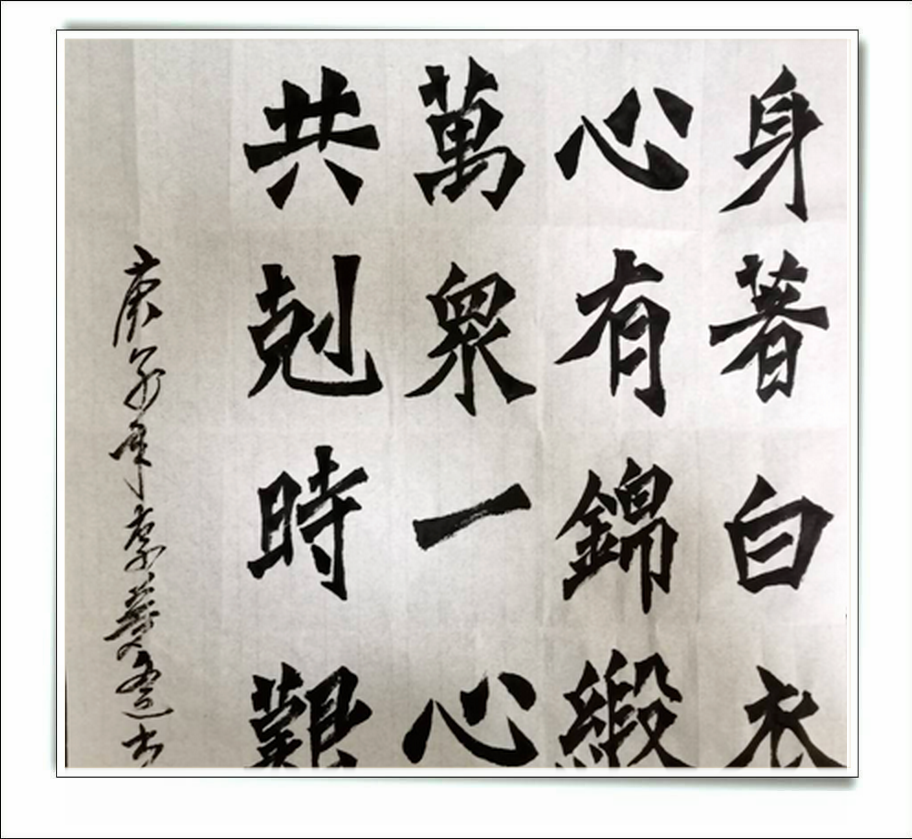 身著白衣
心有錦緞
萬眾一心
共剋時艱
庚子年李